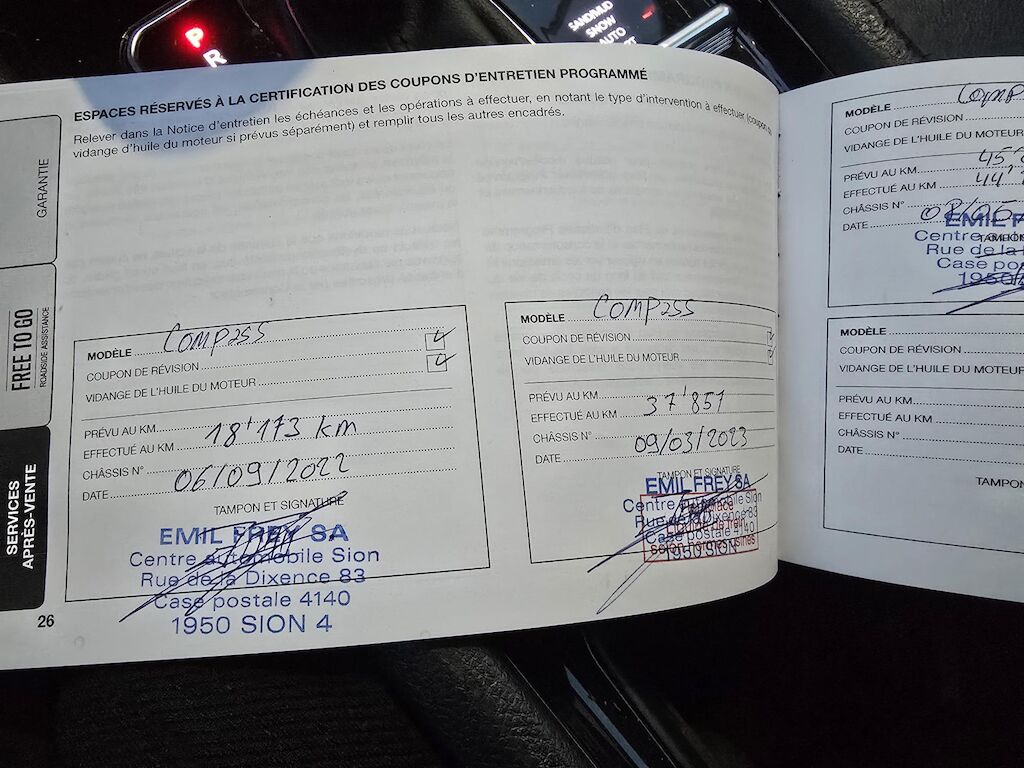 P
R
SAND/MUD
SNOW
AUTO
ESPACES RÉSERVÉS À LA CERTIFICATION DES COUPONS D'ENTRETIEN PROGRAMMÉ
Relever dans la Notice d'entretien les échéances et les opérations à effectuer, en notant le type d'intervention à effectuer (coupon
vidange d'huile du moteur si prévus séparément) et remplir tous les autres encadrés.
GARANTIE
FREE TO GO
ROADSIDE ASSISTANCE
SERVICES
APRÈS-VENTE
26
MODÈLE Compass
COUPON DE RÉVISION
VIDANGE DE L'HUILE DU MOTEUR
PRÉVU AU KM
EFFECTUÉ AU KM 18'173 km
CHÂSSIS N°
DATE 06/09/2022
TAMPON ET SIGNATURE
EMIL FREY SA
Centre automobile Sion
Rue de la Dixence 83
Case postale 4140
1950 SION 4
MODÈLE Compass
COUPON DE RÉVISION
VIDANGE DE L'HUILE DU MOTEUR
PRÉVU AU KM
EFFECTUÉ AU KM 37'851
CHÂSSIS N°
DATE 09/03/2023
TAMPON ET SIGNATURE
EMIL FREY SA
Centre automobile Sion
Rue de la Dixence 83
Case postale
1950 SION
MODÈLE
COUPON DE RÉVISION
VIDANGE DE L'HUILE DU MOTEUR
PRÉVU AU KM
EFFECTUÉ AU KM
CHÂSSIS N°
DATE
EMIL F
Centre
Rue de la
Case po
1950
MODÈLE
COUPON DE RÉVISION
VIDANGE DE L'HUILE DU MOTEUR
PRÉVU AU KM
EFFECTUÉ AU KM
CHÂSSIS N°
DATE
TAMPON